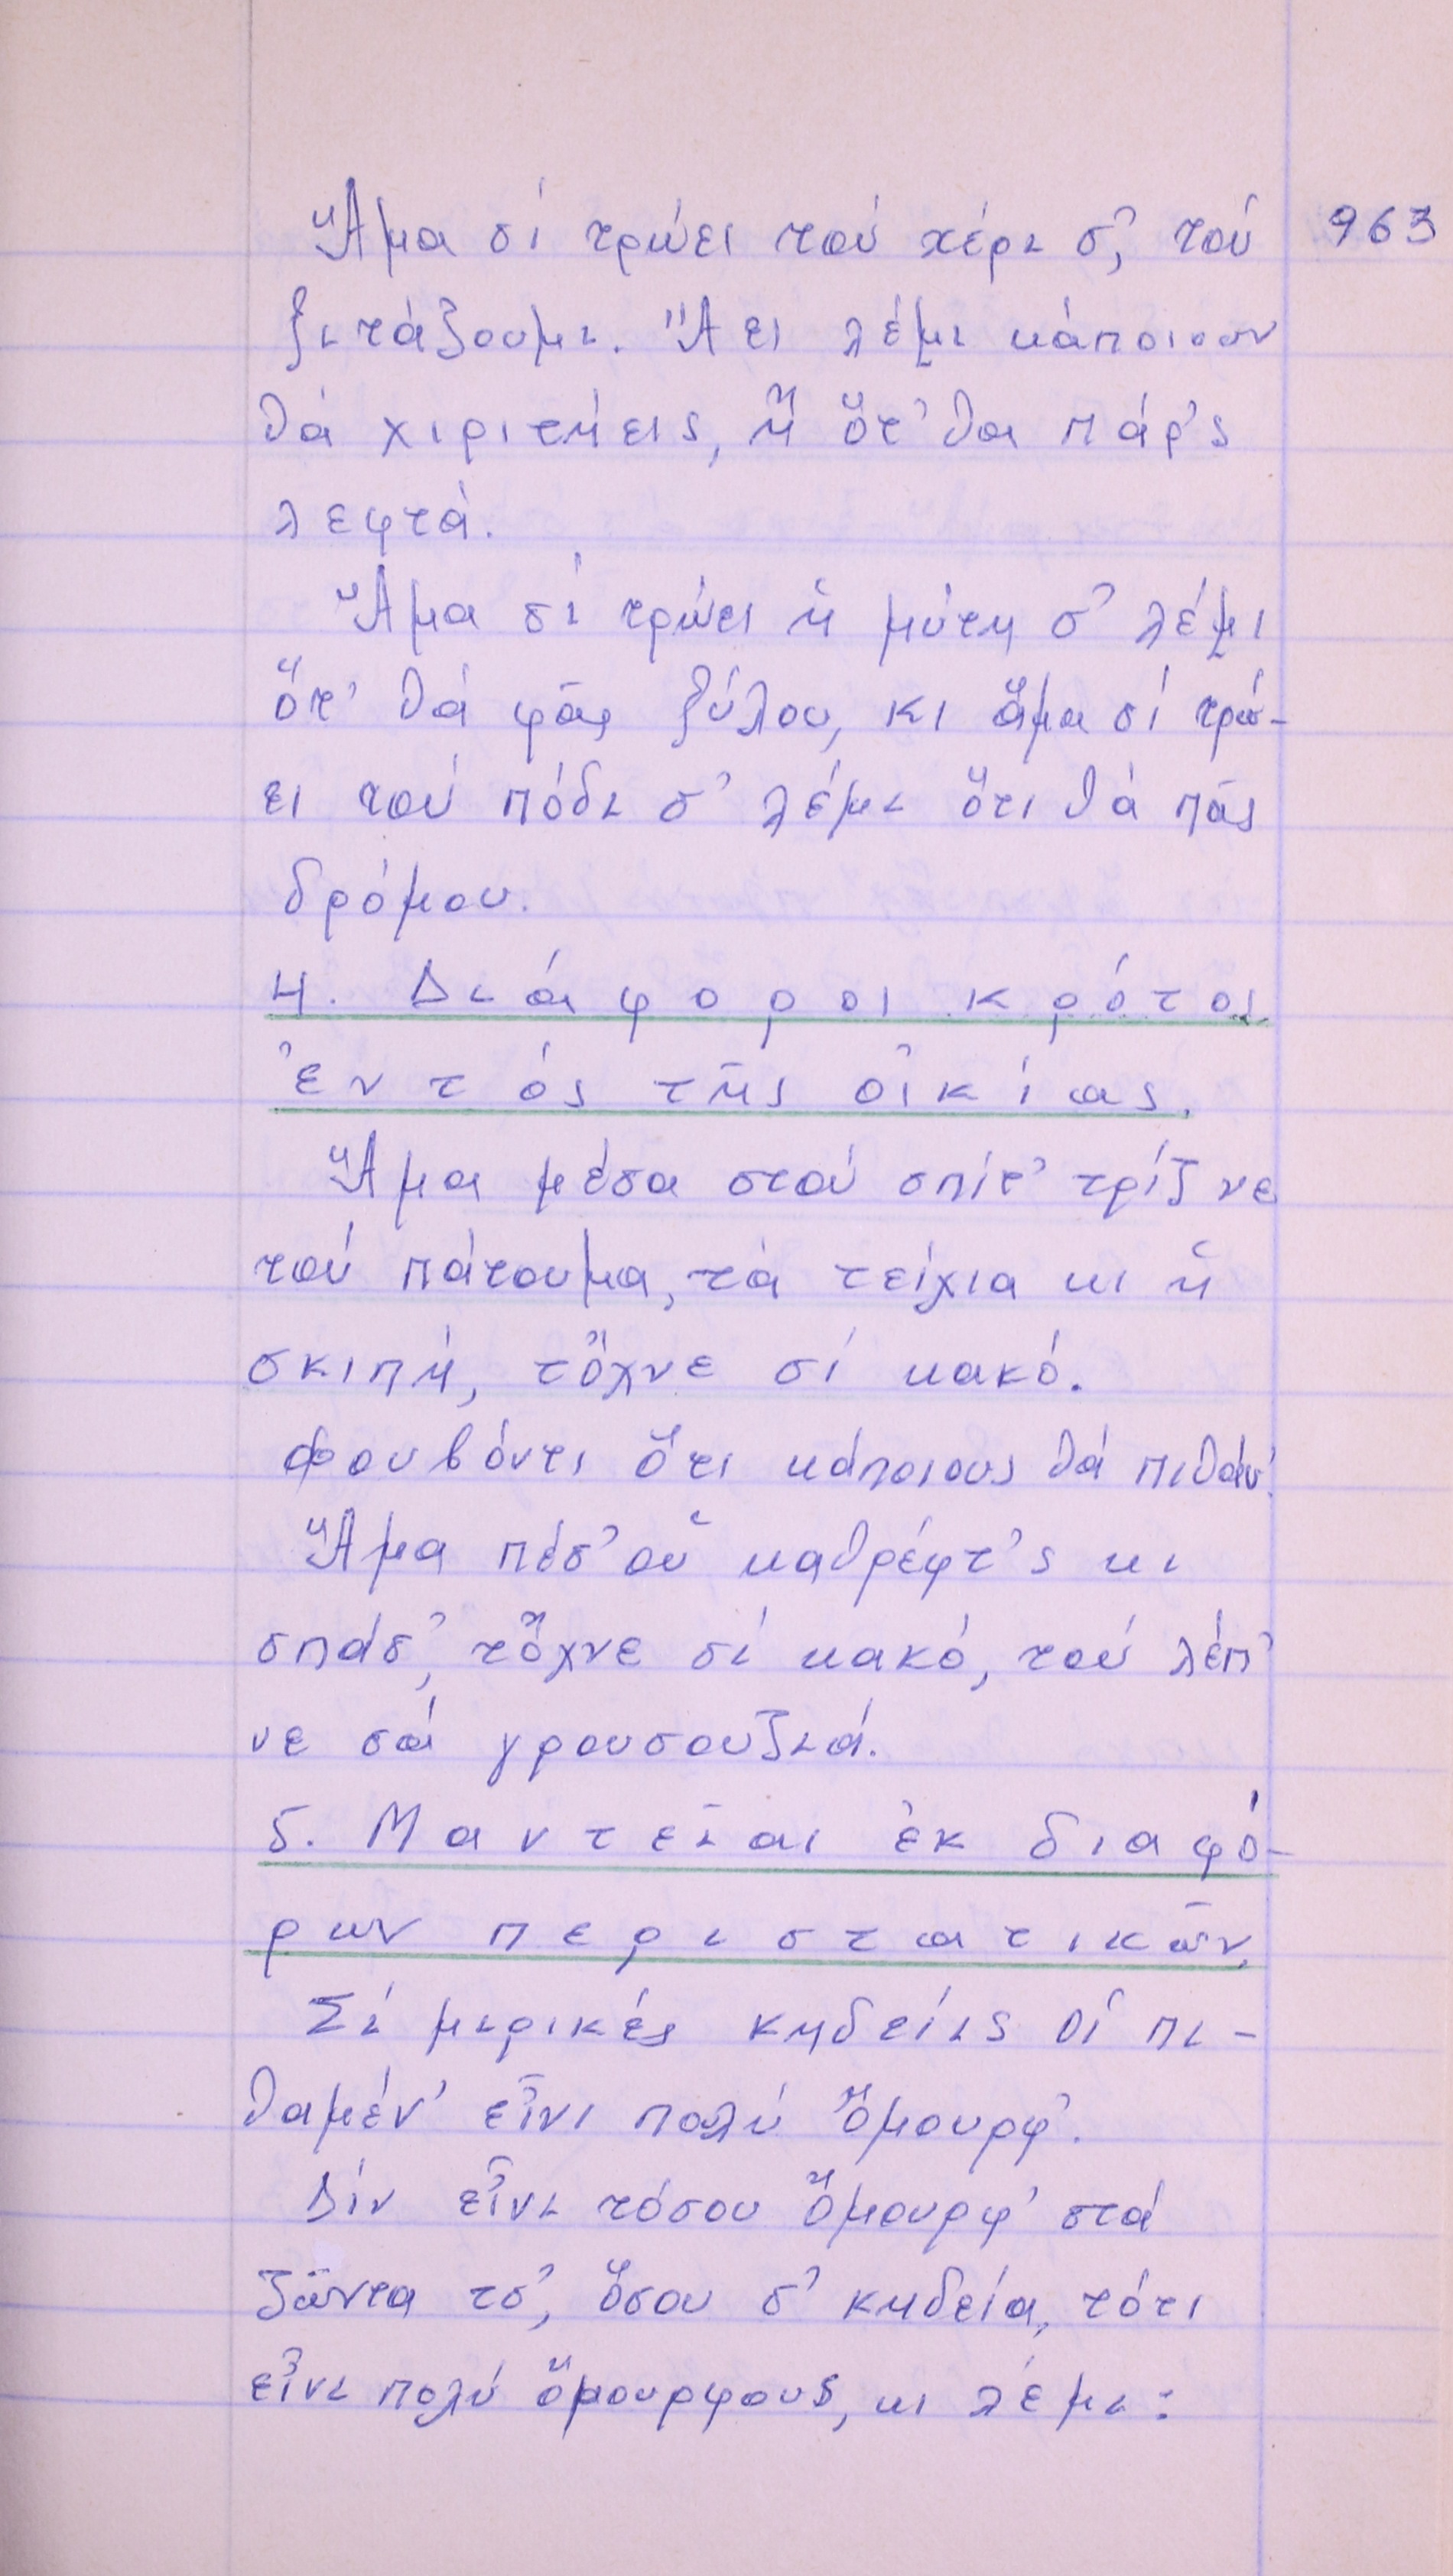 Ἅμα σί τρώει τού χέρι σ', τού
963
ξιτάζουμι. Ἄει λέμι κάποιουν
θά χιριτήεις, ἤ ὅτ' θα πάρ'ς
λεφτά.
Ἅμα σί τρώει ἡ μύτη σ' λέμι
ὅτ' θά φᾶς ξύλου, κι ἅμα σί τρώ-
ει τού πόδι σ' λέμι ὅτι θά πᾶς
δρόμου.
4. Διάφοροι κρότοι
ἐντός τῆς οἰκίας.
Ἅμα μέσα στού σπίτ' τρίζνε
τού πάτουμα, τά τείχια κι ἡ
σκιπή, τὄχνε σί κακό.
Φουβόντι ὅτι κάποιους θά πιθάν'.
Ἅμα πέσ' οὑ καθρέφτ'ς κι
σπάσ', τὄχνε σί κακό, τού λέπ'
νε σά γρουσουζιά.
5. Μαντεῖαι ἐκ διαφό-
ρων περιστατικῶν.
Σί μιρικές κηδείις οἱ πι-
θαμέν' εἶνι πολύ ὄμουρφ'.
Δίν εἶνι τόσου ὄμουρφ' στά
ζῶντα τσ', ὅσου σ' κηδεία, τότι
εἶνι πολύ ὄμουρφους, κι λέμι: